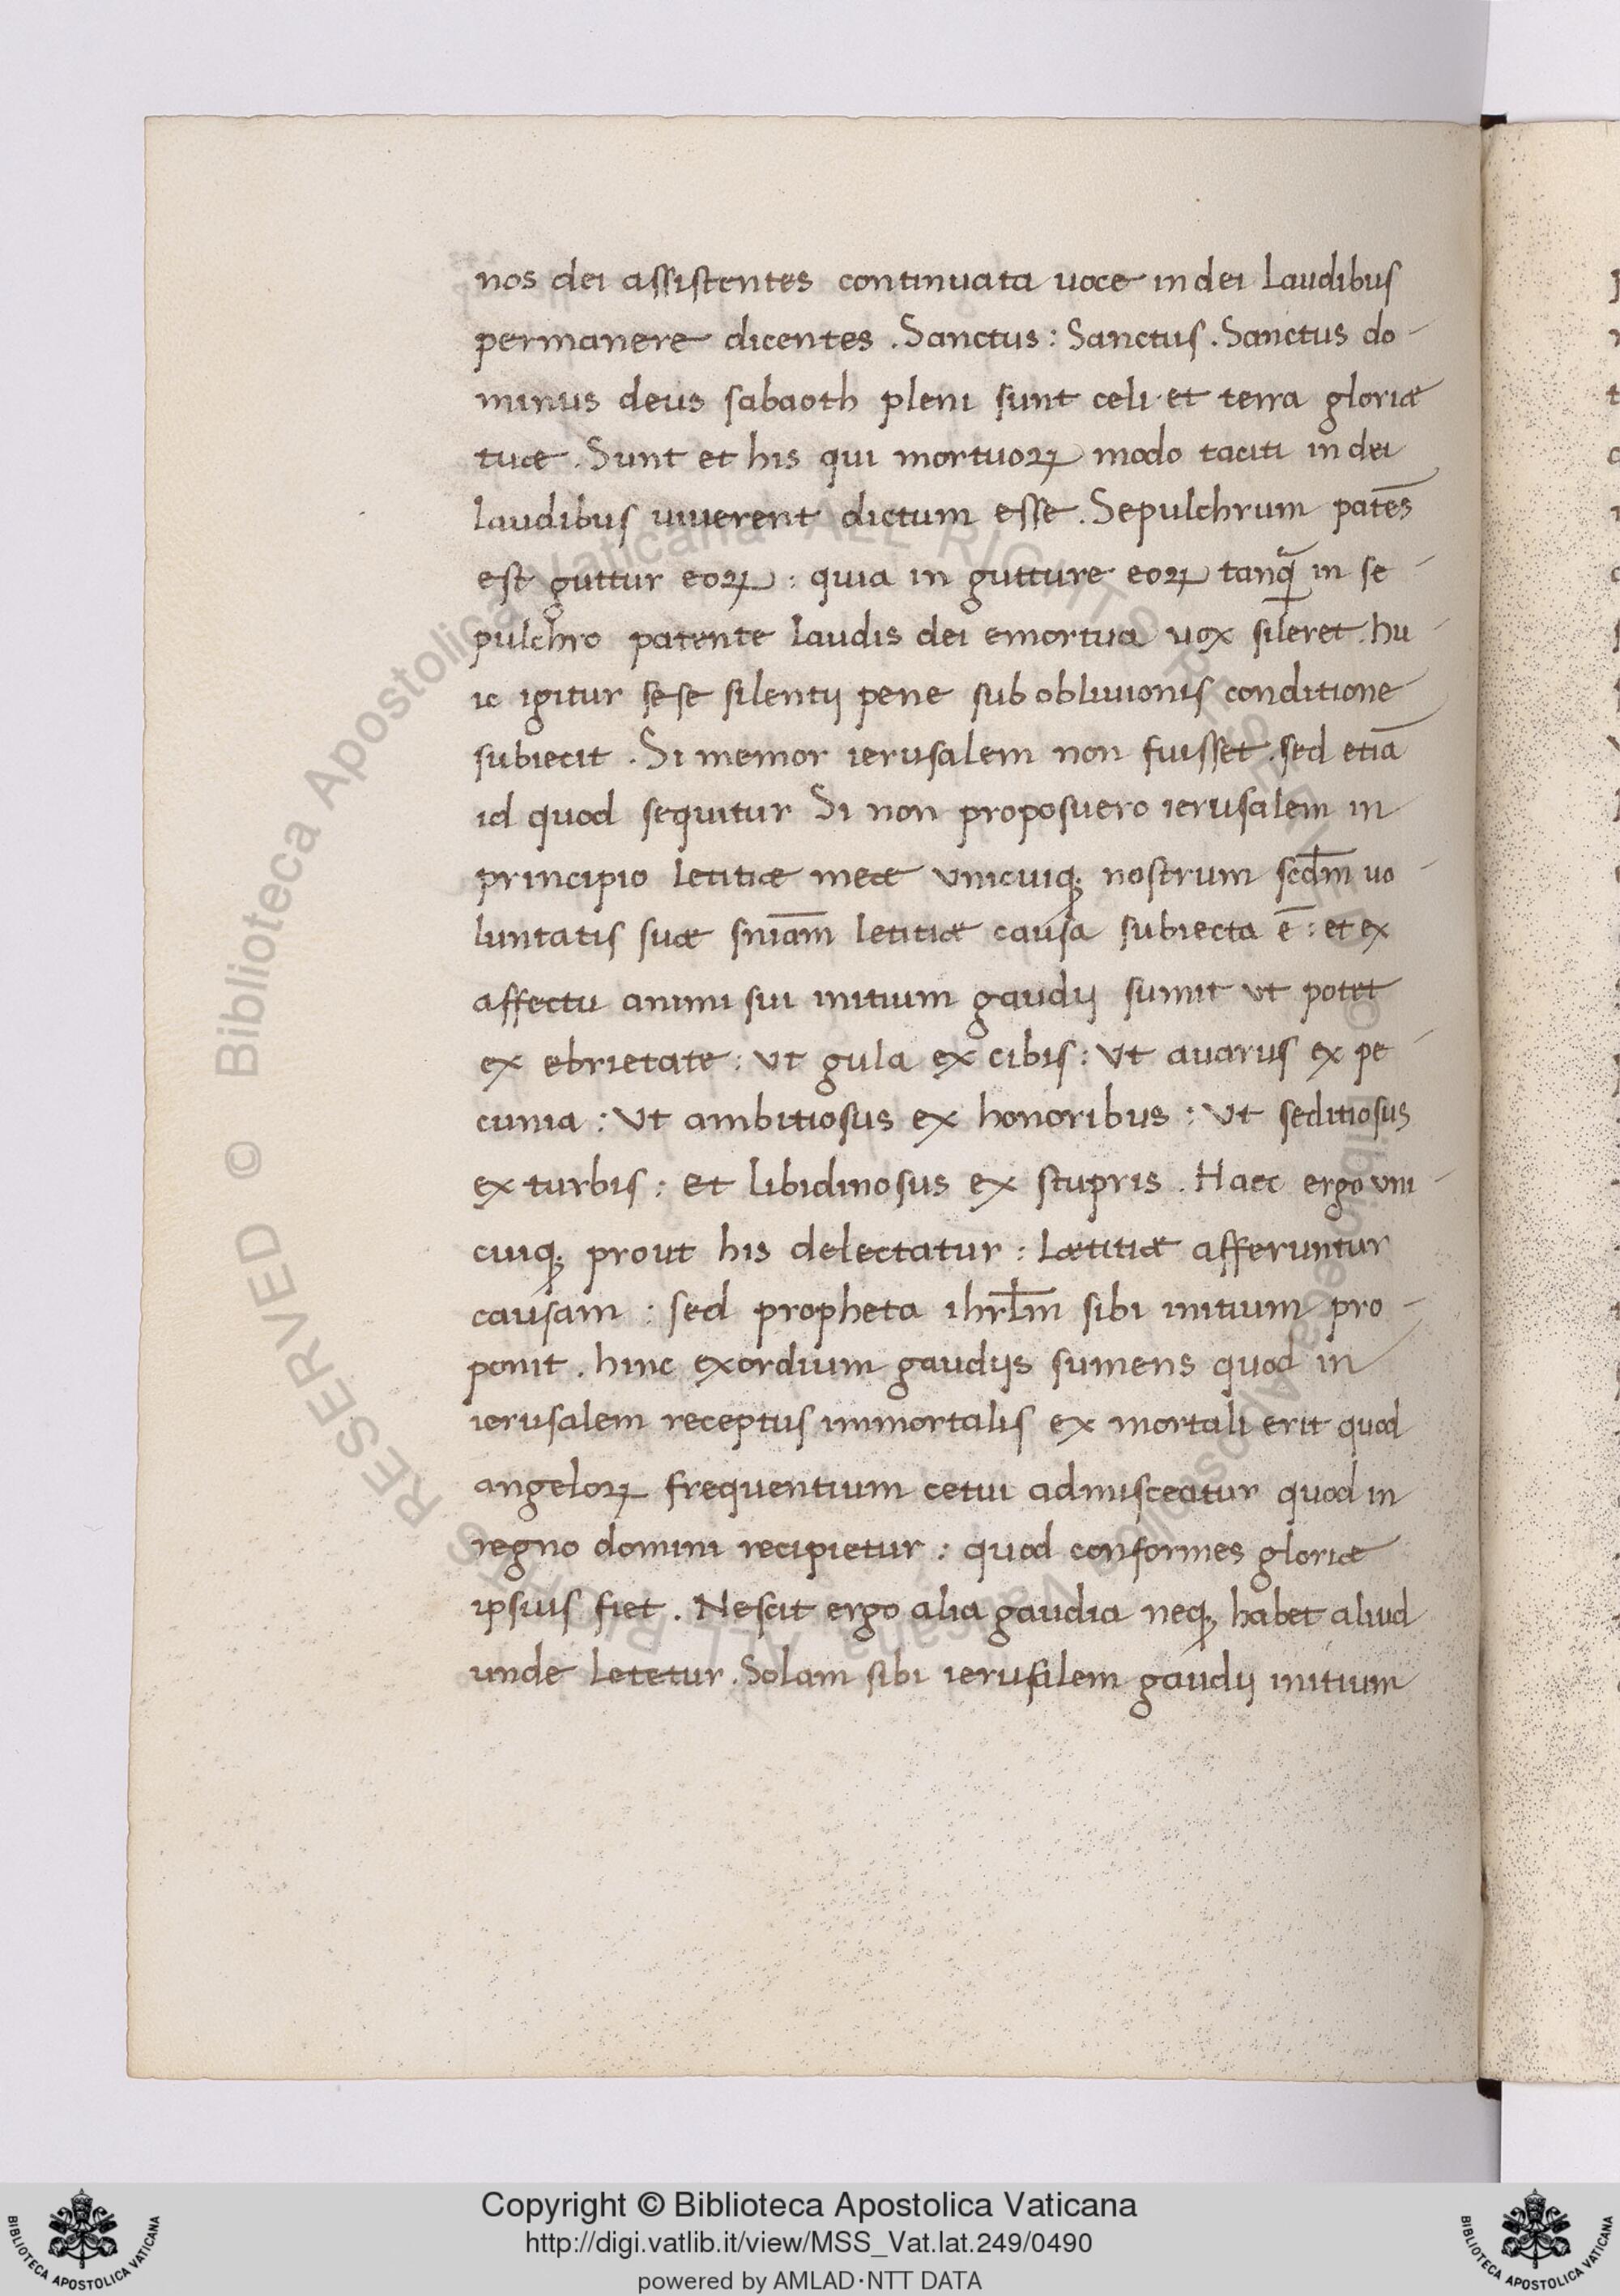 nos dei assistentes continuata uoce in dei laudibus
permanere dicentes . Sanctus : Sanctus . Sanctus do-
minus deus sabaoth pleni sunt celi et terra gloriæ
tuæ . Sunt et his qui mortuoꝝ modo taciti in dei
laudibus uiuerent dictum esse . Sepulchrum patēs
est guttur eoꝝ : quia in gutture eoꝝ tanq̃ in se-
pulchro patente laudis dei emortua uox sileret . hu-
ic igitur sese silentij pene sub obliuionis conditione
subiecit . Si memor ierusalem non fuisset . sed etiā
id quod sequitur Si non proposuero ierusalem in
principio letitiæ meæ vnicuiqꝫ nostrum scd̄m uo-
luntatis suæ sn̄iam letitiæ causa subiecta ē : et ex
affectu animi sui initium gaudij sumit vt potet
ex ebrietate : vt gula ex cibis : vt auarus ex pe-
cunia : vt ambitiosus ex honoribus : vt seditiosus
ex turbis : et libidinosus ex stupris . Haec ergo vni-
cuiqꝫ prout his delectatur : lætitiæ afferuntur
causam : sed propheta ihrl̄m sibi initium pro-
ponit . hinc exordium gaudijs sumens quod in
ierusalem receptus immortalis ex mortali erit quod
angeloꝝ frequentium cetui admisceatur quod in
regno domini recipietur : quod conformes gloriæ
ipsius fiet . Nescit ergo alia gaudia neqꝫ habet aliud
unde letetur . Solam sibi ierusalem gaudij initium
© Biblioteca Apostolica Vaticana ALL RIGHTS RESERVED
© Biblioteca Apostolica Vaticana ALL RIGHTS RESERVED
Copyright © Biblioteca Apostolica Vaticana
http://digi.vatlib.it/view/MSS_Vat.lat.249/0490
powered by AMLAD·NTT DATA
BIBLIOTECA APOSTOLICA VATICANA
BIBLIOTECA APOSTOLICA VATICANA